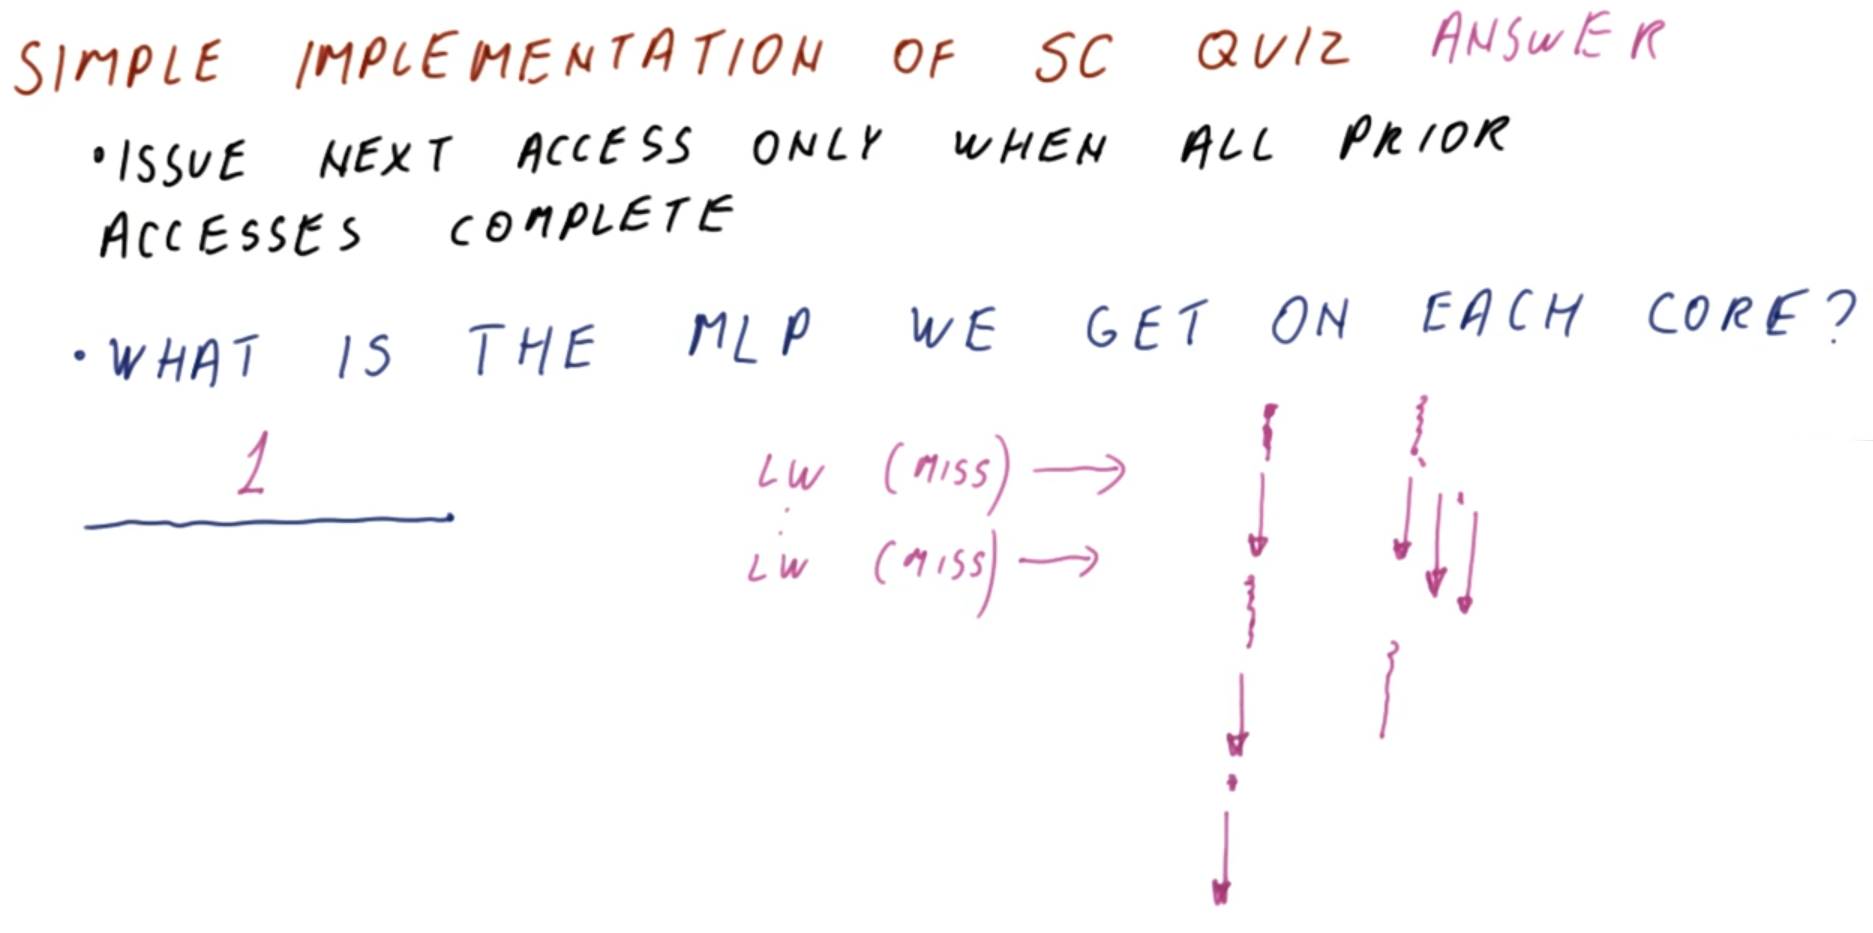 SIMPLE IMPLEMENTATION OF SC QUIZ ANSWER
• ISSUE NEXT ACCESS ONLY WHEN ALL PRIOR
ACCESSES COMPLETE
• WHAT IS THE MLP WE GET ON EACH CORE?
1
LW (MISS) →
:
LW (MISS) →